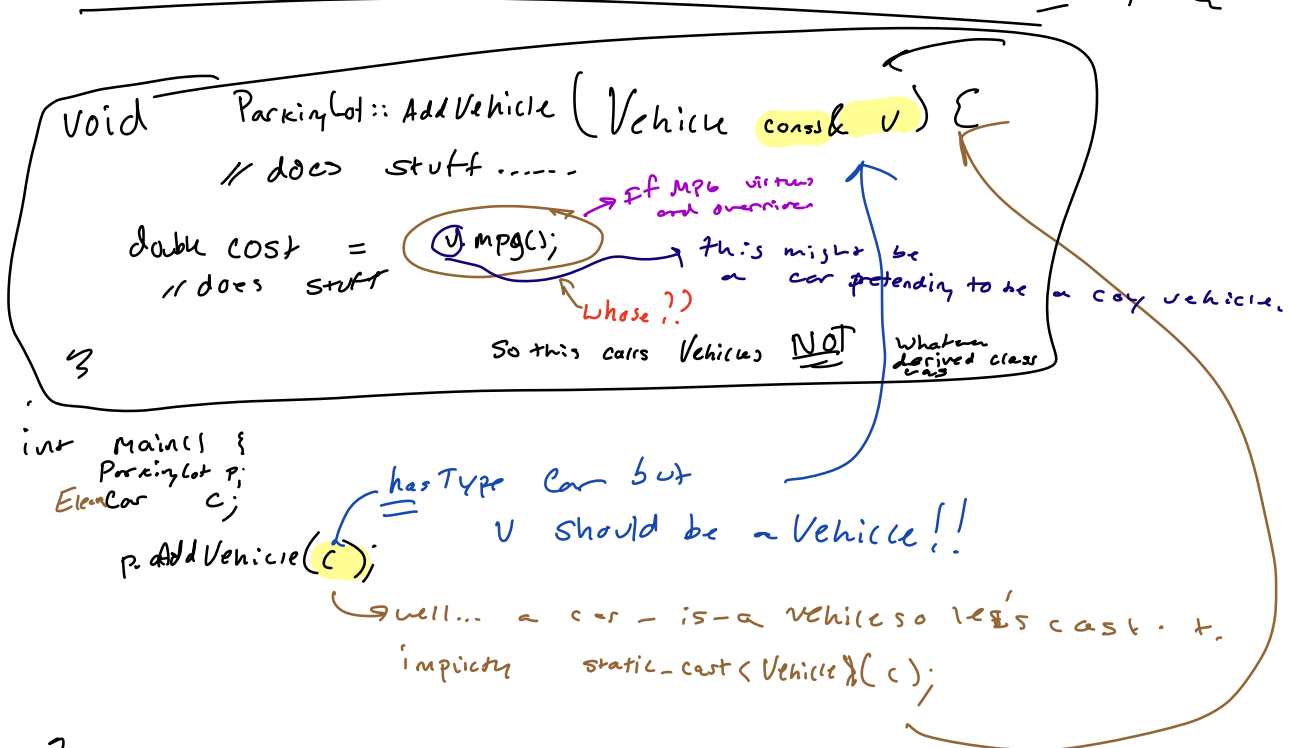 void ParkingLot:: AddVehicle (Vehicle const& v) {
// does stuff ......
If MPG virtual
and overriden
double cost = v.mpg();
this might be
a car pretending to be a coy vehicle.
// does stuff
whose ??
So this calls Vehicles NOT whatever
derived class
was
}
int main() {
ParkingLot p;
Car c;
has Type Car but
v should be a Vehicle!!
p.AddVehicle(c);
well... a car - is-a vehicle so let's cast it.
implicitly static_cast<Vehicle>(c);